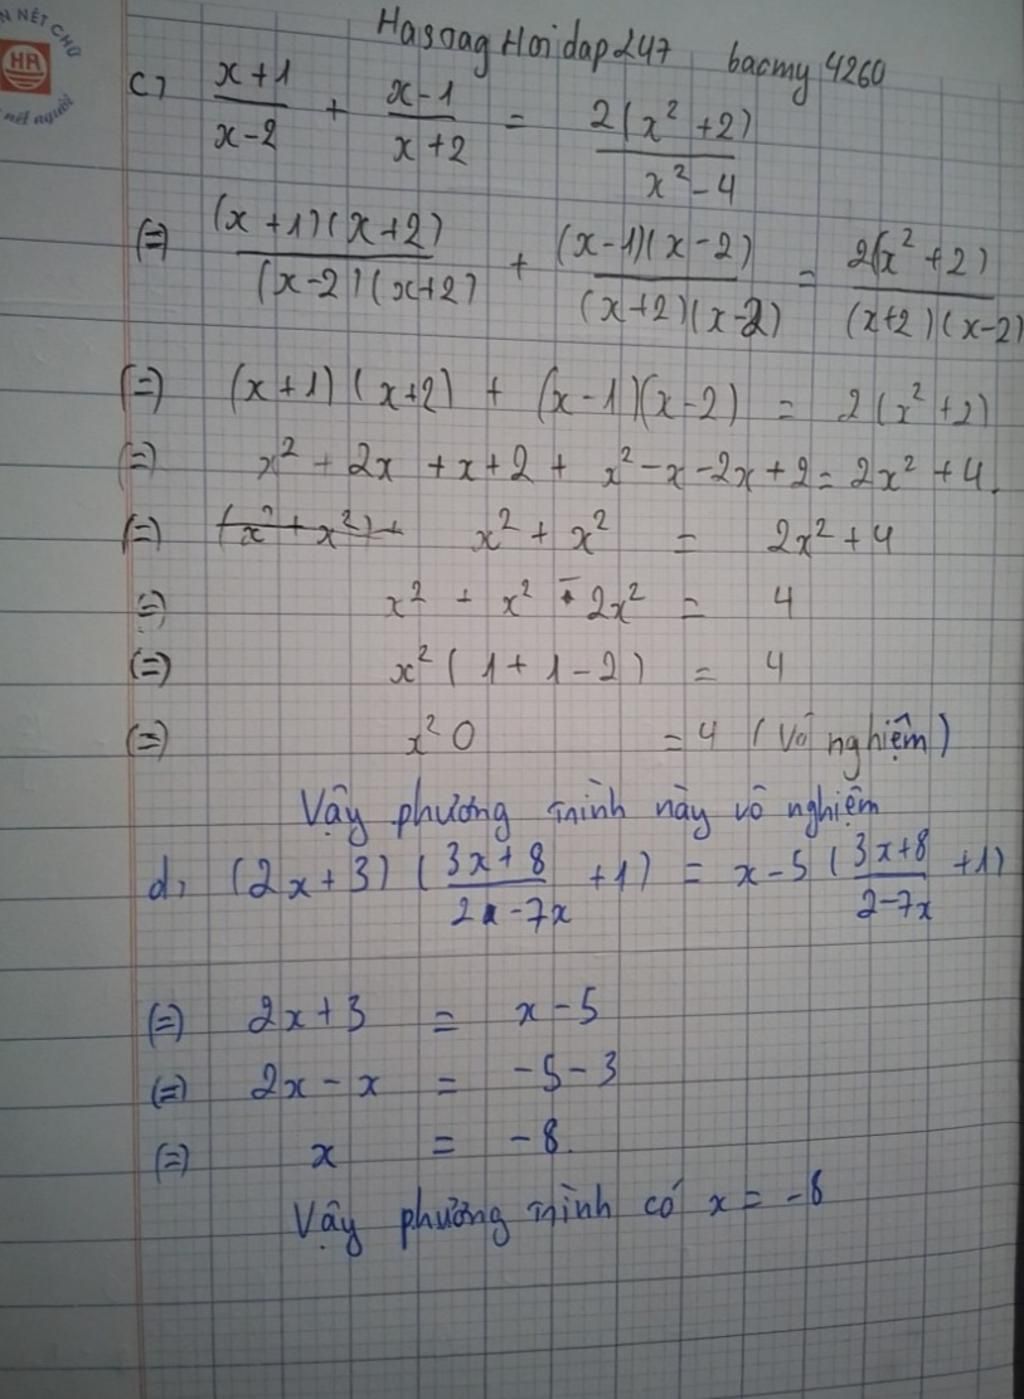 N NÉT CHỮ
HR
nết người
Hasoag Hoidap247 bacmy 4260
c) (x+1)/(x-2) + (x-1)/(x+2) = 2(x²+2)/(x²-4)
(=) (x+1)(x+2)/(x-2)(x+2) + (x-1)(x-2)/(x+2)(x-2) = 2(x²+2)/(x+2)(x-2)
(=) (x+1)(x+2) + (x-1)(x-2) = 2(x²+2)
(=) x² + 2x + x + 2 + x² - x - 2x + 2 = 2x² + 4.
(=) (x² + x²) + x² + x² = 2x² + 4
(=) x² + x² - 2x² = 4
(=) x² (1 + 1 - 2) = 4
(=) x² 0 = 4 (Vô nghiệm)
Vậy phương trình này vô nghiệm
d, (2x+3)((3x+8)/(2-7x) + 1) = x-5((3x+8)/(2-7x) + 1)
(=) 2x+3 = x-5
(=) 2x - x = -5-3
(=) x = -8.
Vậy phương trình có x = -8